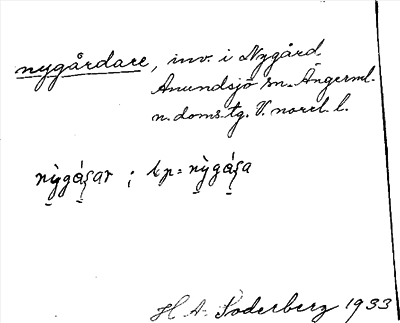 nygårdare, inv. i Nygård.
Anundsjö sn. Ångerml.
n. doms.tg. V. norrl. l.
nỳgáʂar ; bp = nỳgáʂa
H A. Söderberg 1933